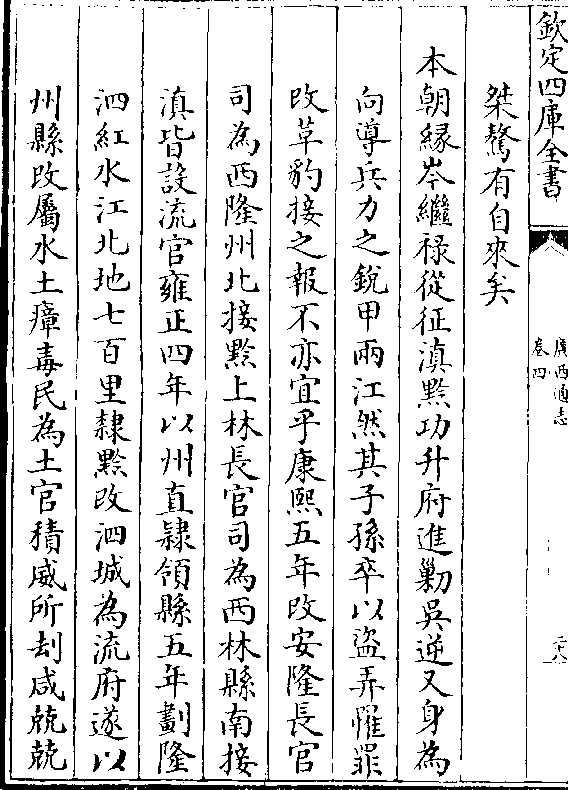 欽定四庫全書
廣西通志
卷四
二十八
桀驁有自來矣
本朝緣岑繼祿從征滇黔功升府進勦吳逆又身為
向導兵力之銳甲兩江然其子孫卒以盜弄罹罪
改草豹接之報不亦宜乎康熙五年改安隆長官
司為西隆州北接黔上林長官司為西林縣南接
滇皆設流官雍正四年以州直隸領縣五年劃隆
泗紅水江北地七百里隸黔改泗城為流府遂以
州縣改屬水土瘴毒民為土官積威所刦咸兢兢